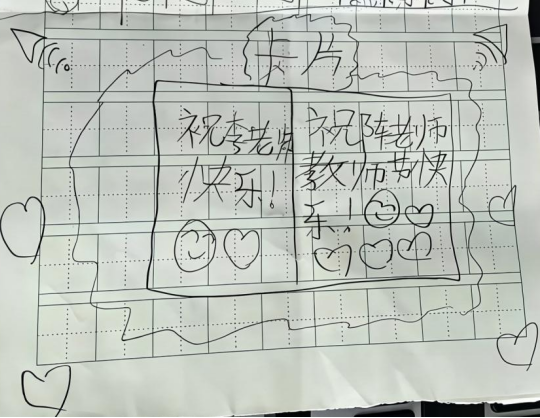 卡片
祝李老师
快乐！
祝陈老师
教师节快
乐！